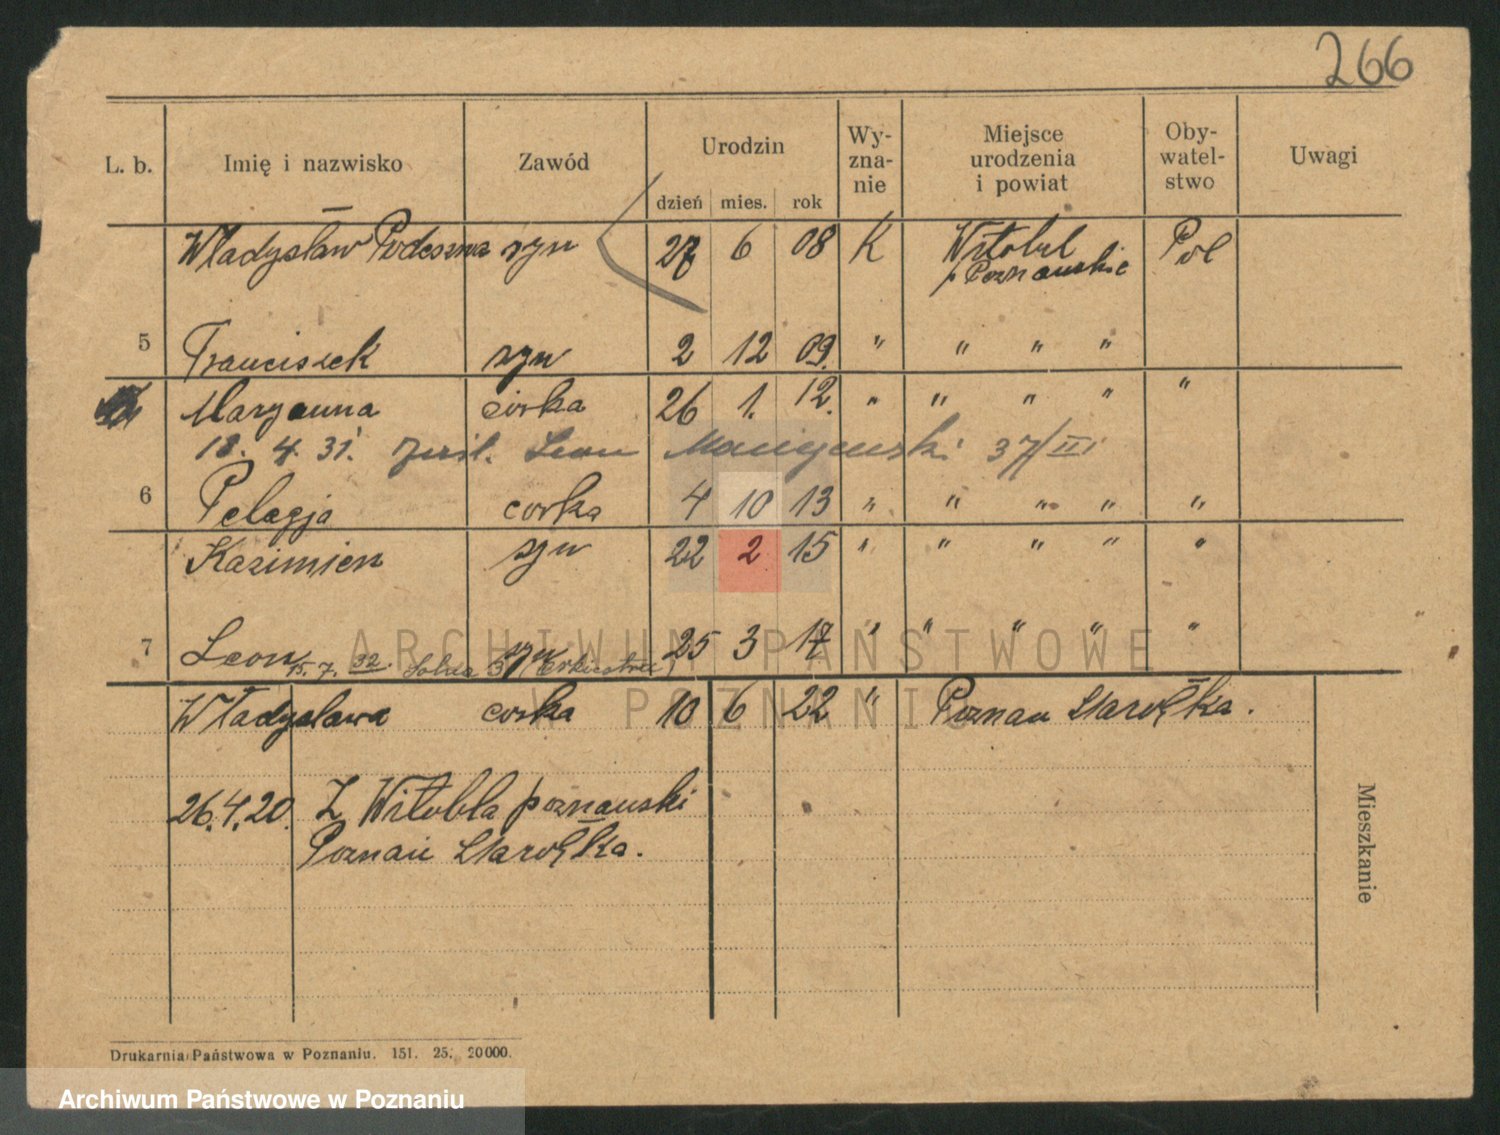 266
L. b. Imię i nazwisko Zawód Urodzin Wy-zna-nie Miejsce urodzenia i powiat Oby-watel-stwo Uwagi
dzień mies. rok
Władysław Podeszwa syn 27 6 08 K Witobel Pol
p Poznańskie
5 Franciszek syn 2 12 09. " " " "
Maryanna córka 26 1. 12. " " " " "
18. 4. 31. Leon 37/III
6 Pelagja corka 4 10 13 " " " " "
Kazimierz syn 22 2 15 " " " " "
7 Leon syn 25 3 17 " " " " "
15. 7. 32.
ARCHIWUM PAŃSTWOWE
W POZNANIU
Władysława corka 10 6 22 " Poznań Starołęka.
26.4.20. Z Witobla poznański
Poznań Starołęka.
Mieszkanie
Drukarnia Państwowa w Poznaniu. 151. 25. 20000.
Archiwum Państwowe w Poznaniu